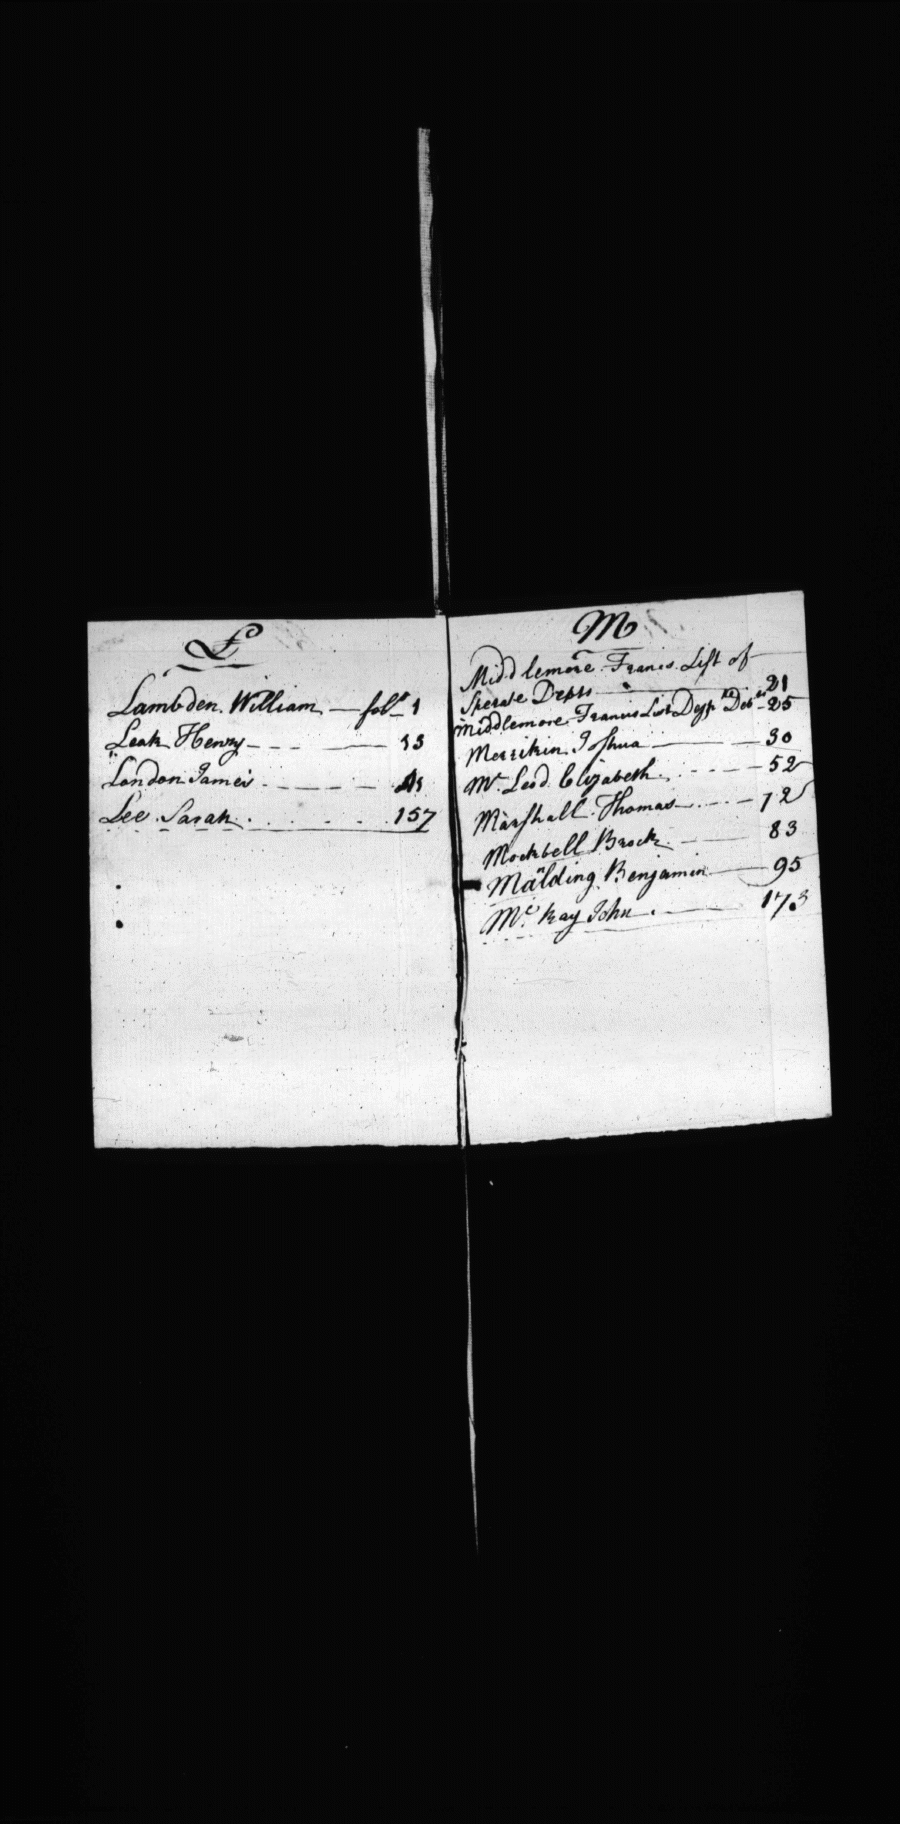 L
Lambden William — fol° 1
Leak Henry - - - — 13
London James - - - - - -
Lee Sarah . . . . . . 157
M
Middlemore Francis List of
Sperate Debts — 21
Middlemore Francis List Desp Deb 25
Merrikin Joshua — 30
Mc Leod Elizabeth . - - - - 52
Marshall Thomas - - - - 72
Mockbell Brock - — 83
Malding Benjamin — 95
Mc Kay John . — 173